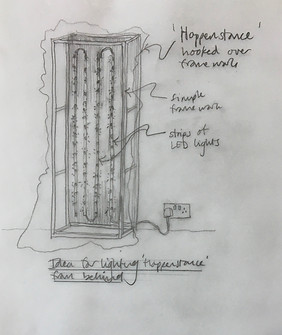 'Happenstance'
hooked over
framework
simple
framework
strips of
LED lights
Idea for lighting 'Happenstance'
from behind